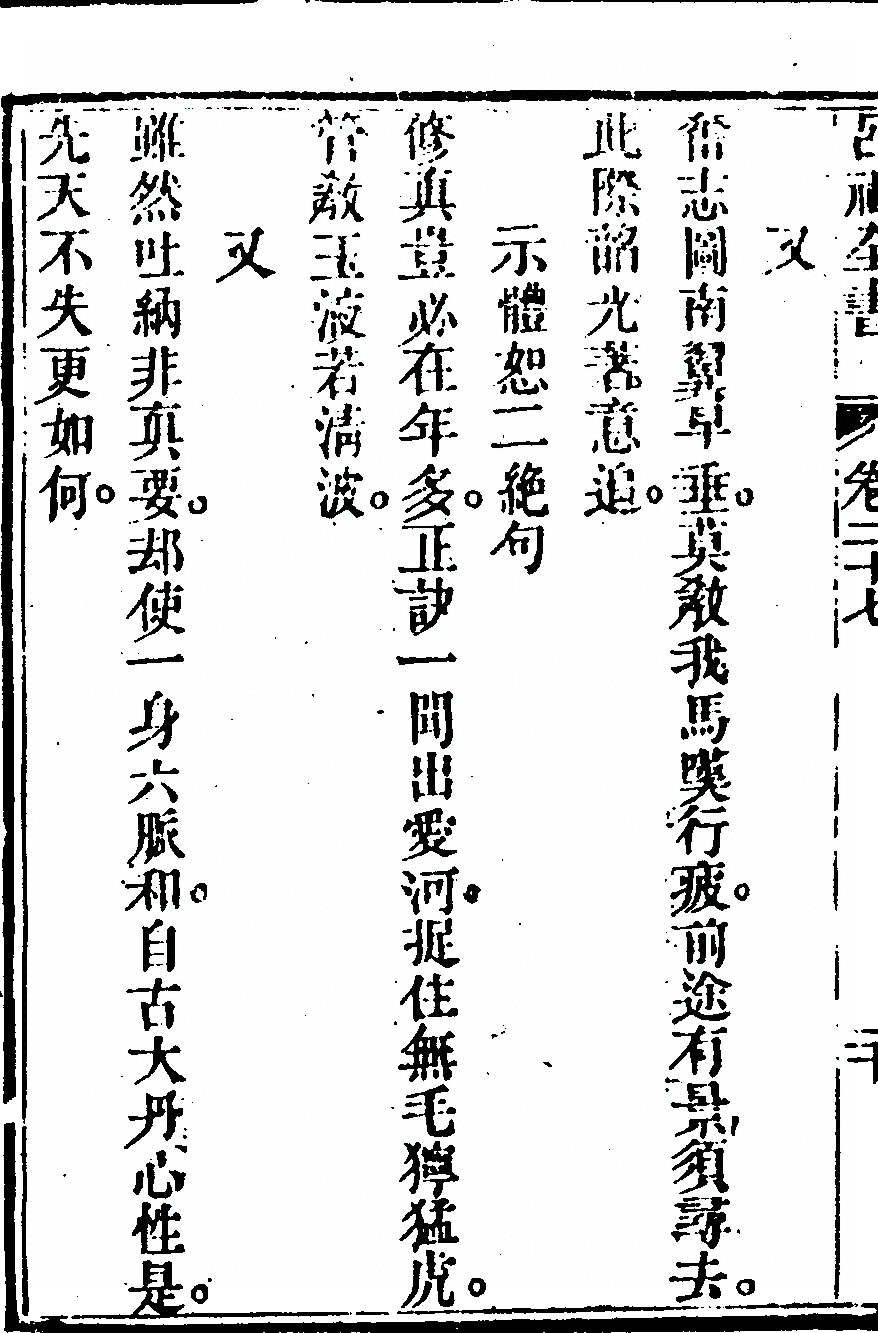 呂祖全書 卷二十七 二十
又
奮志圖南翼早垂。莫教我馬嘆行疲。前途有景須尋去。
此際韶光著意追。
示體恕二絕句
修真豈必在年多。正訣一聞出愛河。捉住無毛獰猛虎。
管教玉液若清波。
又
雖然吐納非真要。却使一身六脈和。自古大丹心性是。
先天不失更如何。